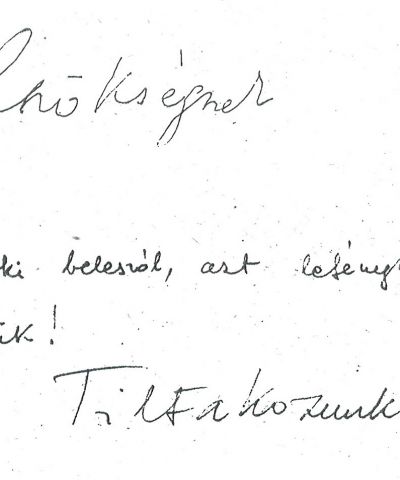 lnökségnek
ki beleszól, azt lefény
ük!
Tiltakozunk